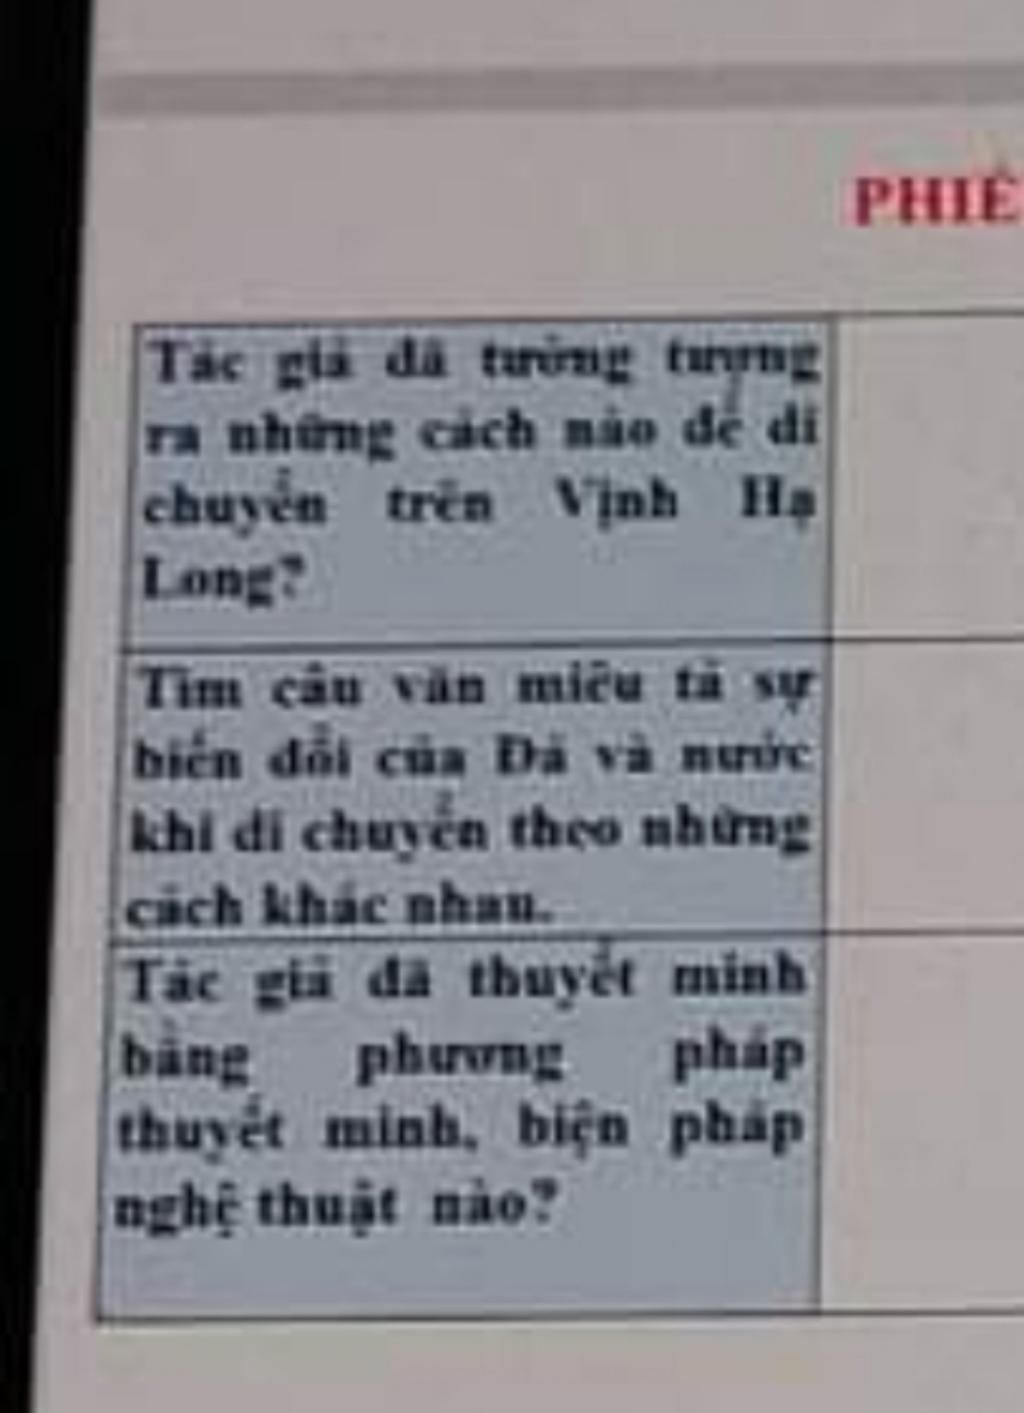 PHIẾ
Tác giả đã tưởng tượng
ra những cách nào để di
chuyển trên Vịnh Hạ
Long?
Tìm câu văn miêu tả sự
biến đổi của Đá và nước
khi di chuyển theo những
cách khác nhau.
Tác giả đã thuyết minh
bằng phương pháp
thuyết minh, biện pháp
nghệ thuật nào?